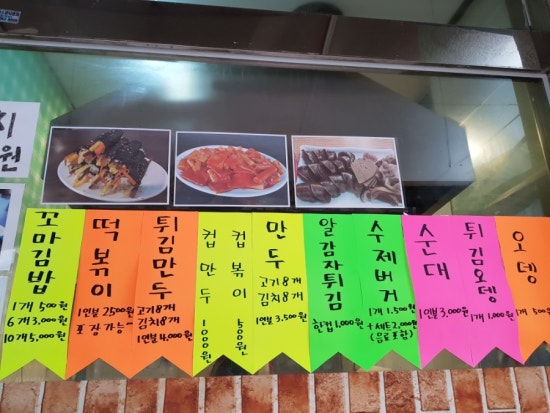 지
원
꼬마김밥
1개 500원
6개 3,000원
10개 5,000원
떡볶이
1인분 2500원
포장가능
튀김만두
고기8개
김치8개
1인분 4,000원
컵만두
1000원
컵볶이
500원
만두
고기8개
김치8개
1인분 3,500원
알감자튀김
한컵 1,000원
수제버거
1개 1,500원
+세트 2,000원
(음료포함)
순대
1인분 3,000원
튀김오뎅
1개 1,000원
오뎅
1개 500